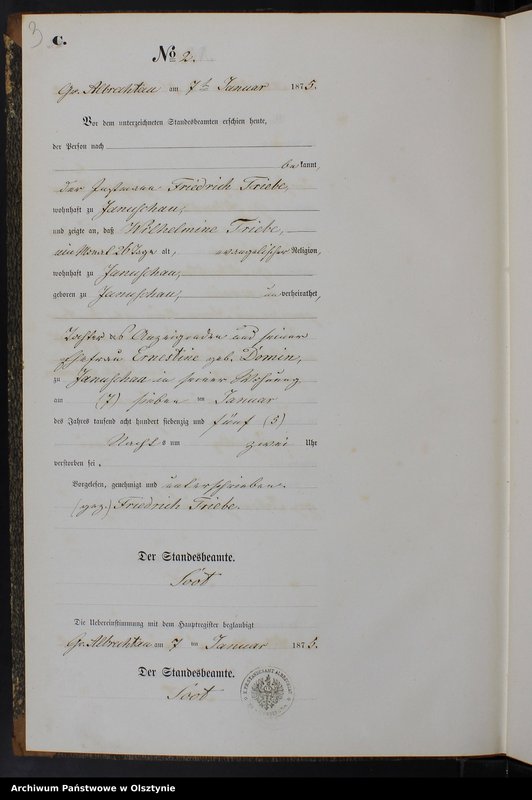 3
C.
No 2.
Gr. Albrechtau am 7ten Januar 1875.
Vor dem unterzeichneten Standesbeamten erschien heute,
der Person nach
bekannt,
der Instmann Friedrich Triebe,
wohnhaft zu Januschau,
und zeigte an, daß Wilhelmine Triebe,
ein Monat 26 Tage alt, evangelischer Religion,
wohnhaft zu Januschau,
geboren zu Januschau, unverheirathet,
Tochter des Anzeigenden und seiner
Ehefrau Ernestine geb. Domin,
zu Januschau in seiner Wohnung
am (7) sieben ten Januar
des Jahres tausend acht hundert siebenzig und fünf (5)
Nachts um zwei Uhr
verstorben sei.
Vorgelesen, genehmigt und unterschrieben.
(gez.) Friedrich Triebe.
Der Standesbeamte.
Die Uebereinstimmung mit dem Hauptregister beglaubigt
Gr. Albrechtau am 7 ten Januar 1875.
Der Standesbeamte.
Archiwum Państwowe w Olsztynie